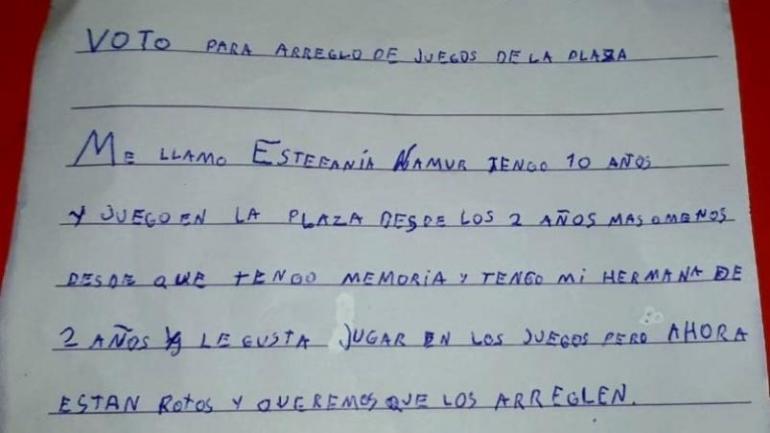 VOTO PARA ARREGLO DE JUEGOS DE LA PLAZA
ME LLAMO ESTEFANÍA NAMUR TENGO 10 AÑOS
Y JUEGO EN LA PLAZA DESDE LOS 2 AÑOS MAS O MENOS
DESDE QUE TENGO MEMORIA Y TENGO MI HERMANA DE
2 AÑOS Y LE GUSTA JUGAR EN LOS JUEGOS PERO AHORA
ESTAN ROTOS Y QUEREMOS QUE LOS ARREGLEN.